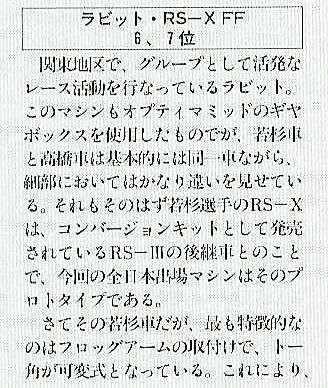 ラビット・RS−X FF
6、7位
関東地区で、グループとして活発な
レース活動を行なっているラビット。
このマシンもオプティマミッドのギヤ
ボックスを使用したものでが、若杉車
と高橋車は基本的には同一車ながら、
細部においてはかなり違いを見せてい
る。それもそのはず若杉選手のRS−X
は、コンバージョンキットとして発売
されているRS−Ⅲの後継車とのこと
で、今回の全日本出場マシンはそのプ
ロトタイプである。
さてその若杉車だが、最も特徴的な
のはフロッグアームの取付けで、トー
角が可変式となっている。これにより、